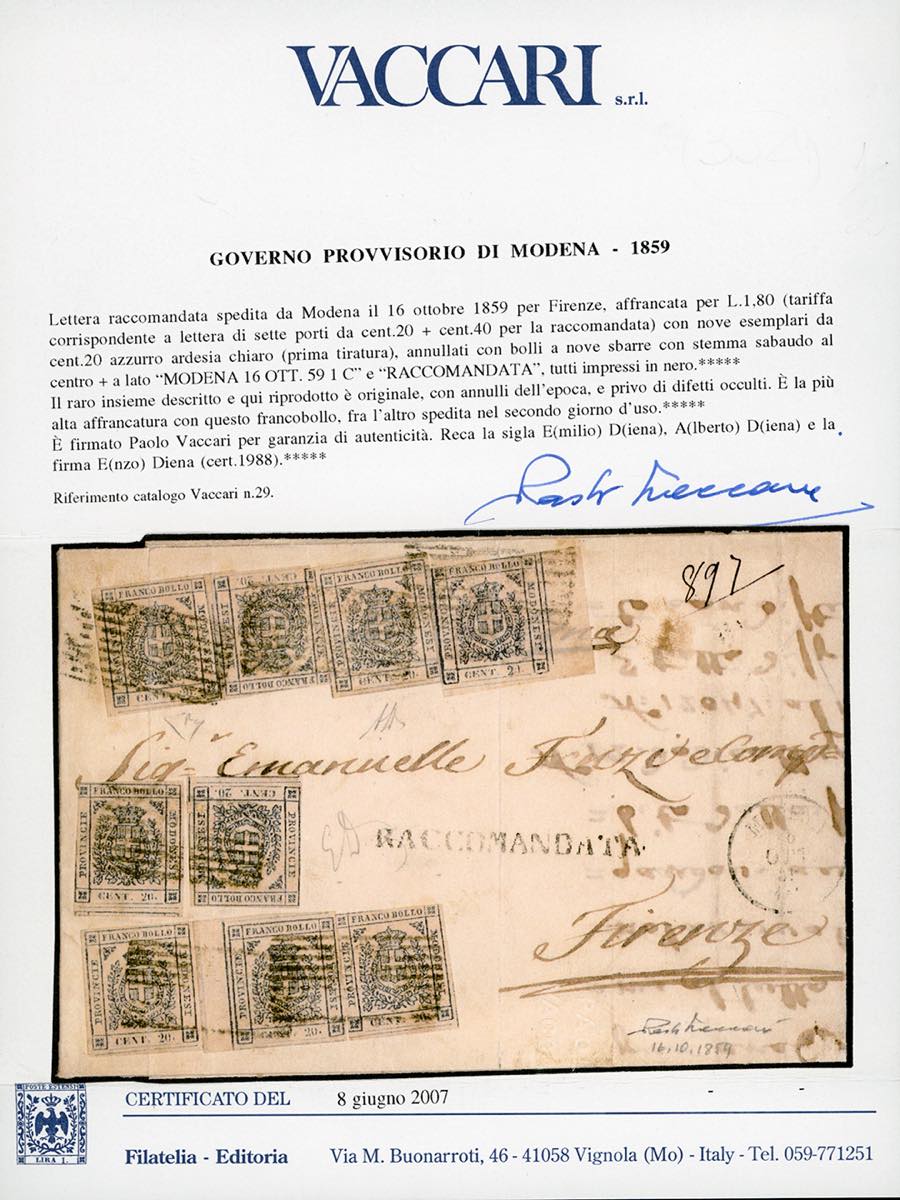 VACCARI s.r.l.
GOVERNO PROVVISORIO DI MODENA - 1859
Lettera raccomandata spedita da Modena il 16 ottobre 1859 per Firenze, affrancata per L.1,80 (tariffa
corrispondente a lettera di sette porti da cent.20 + cent.40 per la raccomandata) con nove esemplari da
cent.20 azzurro ardesia chiaro (prima tiratura), annullati con bolli a nove sbarre con stemma sabaudo al
centro + a lato “MODENA 16 OTT. 59 1 C” e “RACCOMANDATA”, tutti impressi in nero.*****
Il raro insieme descritto e qui riprodotto è originale, con annulli dell’epoca, e privo di difetti occulti. È la più
alta affrancatura con questo francobollo, fra l’altro spedita nel secondo giorno d’uso.*****
È firmato Paolo Vaccari per garanzia di autenticità. Reca la sigla E(milio) D(iena), A(lberto) D(iena) e la
firma E(nzo) Diena (cert.1988).*****
Riferimento catalogo Vaccari n.29.
897
FRANCO BOLLO
CENT. 20
FRANCO BOLLO
CENT. 20
FRANCO BOLLO
PROVINCIE
MODONESI
CENT. 20
FRANCO BOLLO
PROVINCIE
MODONEST
CENT. 20
Sigr Emanuelle
FRANCO BOLLO
PROVINCIE
MODONEST
CENT. 20.
CENT. 20
PROVINCIE
FRANCO BOLLO
RACCOMANDATA
Firenze
FRANCO BOLLO
PROVINCIE
CENT. 20.
FRANCO BOLLO
PROVINCIE
CENT. 20.
FRANCO BOLLO
PROVINCIE
CENT. 20.
16.10.1859
POSTE ESTENSI
LIRA 1.
CERTIFICATO DEL 8 giugno 2007 - -
Filatelia - Editoria Via M. Buonarroti, 46 - 41058 Vignola (Mo) - Italy - Tel. 059-771251